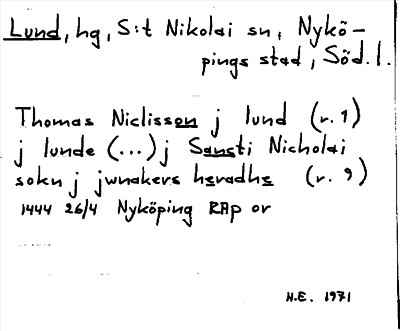 Lund, hg, S:t Nikolai sn, Nykö-
pings stad, Söd. l.
Thomas Niclisson j lund (r. 1)
j lunde (...) j Sancti Nicholai
sokn j jwnakers heradhe (r. 9)
1444 26/4 Nyköping RAp or
H.E. 1971